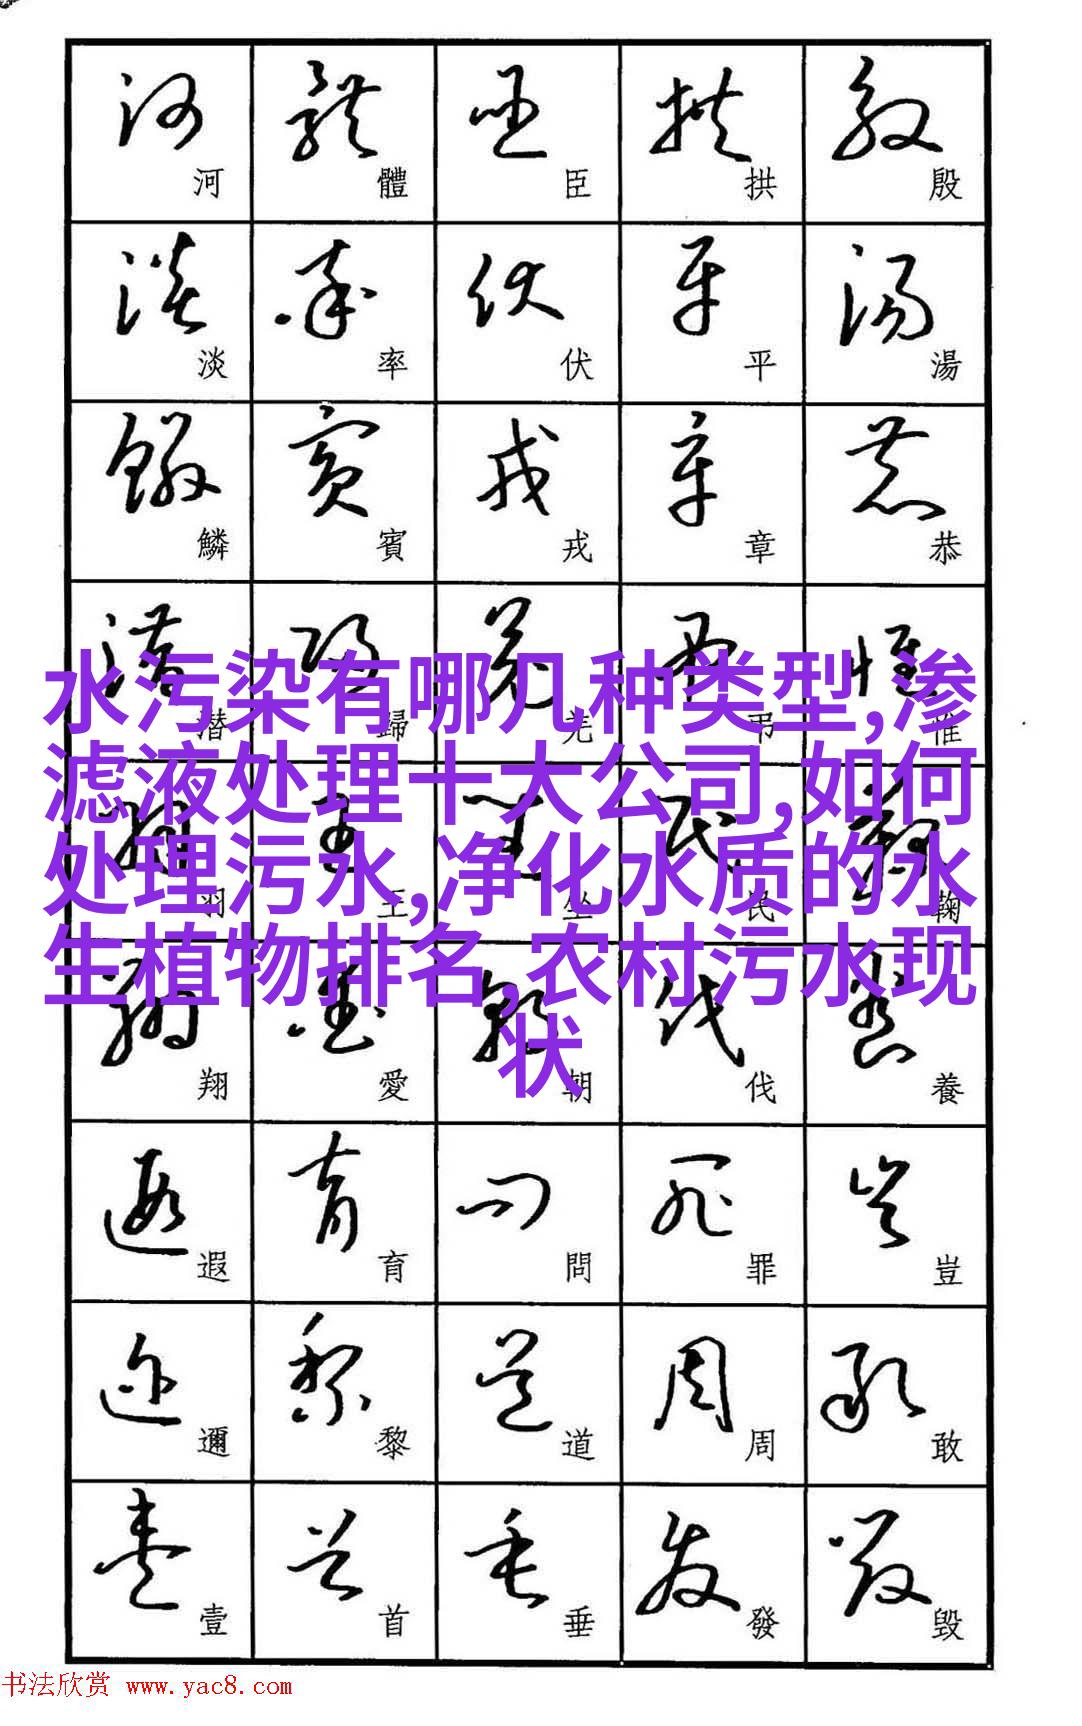 河 體 臣 拱 殷
淡 率 伏 平 湯
鱗 賓 戎 章 恭
潜 歸 羌 弔 惟
羽 王 坐 民 鞠
翔 愛 朝 伐 養
遐 育 問 罪 豈
邇 黎 道 周 敢
壹 首 垂 發 毀
水污染有哪几种类型,渗
滤液处理十大公司,如何
处理污水,净化水质的水
生植物排名,农村污水现
状
书法欣赏 www.yac8.com